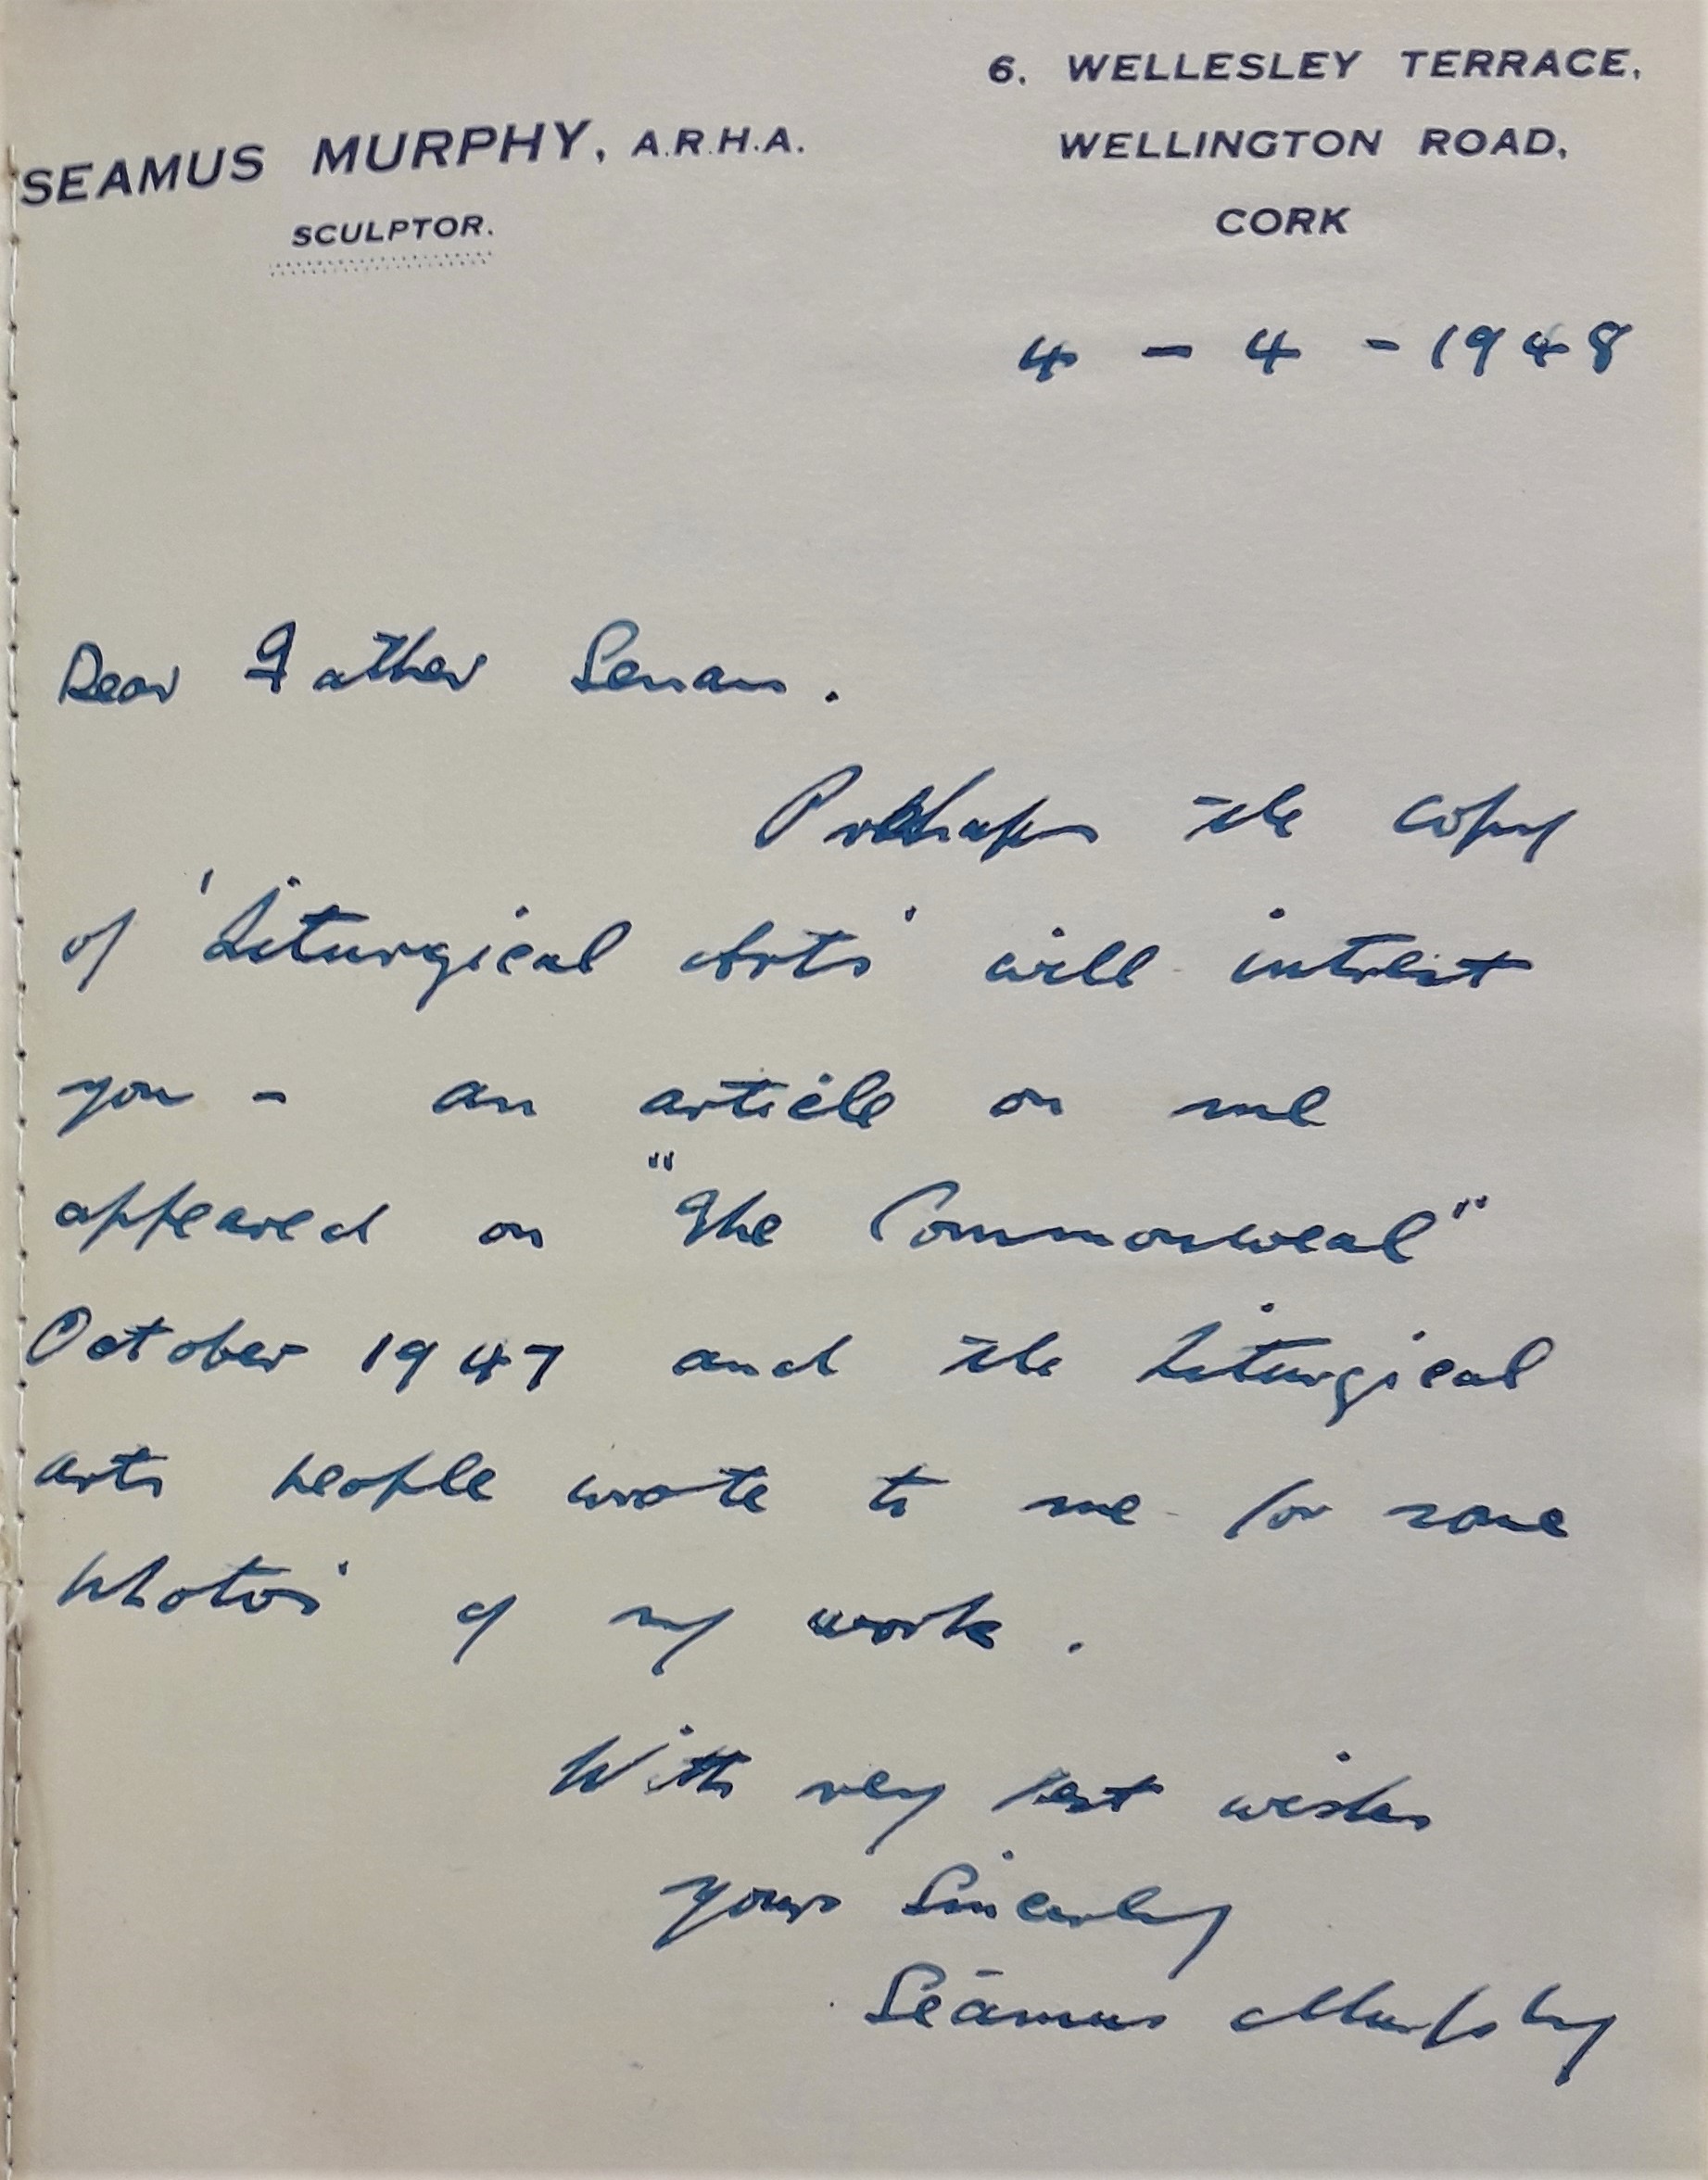 6. WELLESLEY TERRACE,
SEAMUS MURPHY, A.R.H.A.
WELLINGTON ROAD,
SCULPTOR.
CORK
4 - 4 - 1948
Dear Father Senan.
Perhaps the copy
of 'Liturgical Arts' will interest
you - an article on me
appeared on "The Commonweal"
October 1947 and the Liturgical
arts people wrote to me for some
photos' of my work.
With very best wishes
yours Sincerely
Séamus Murphy